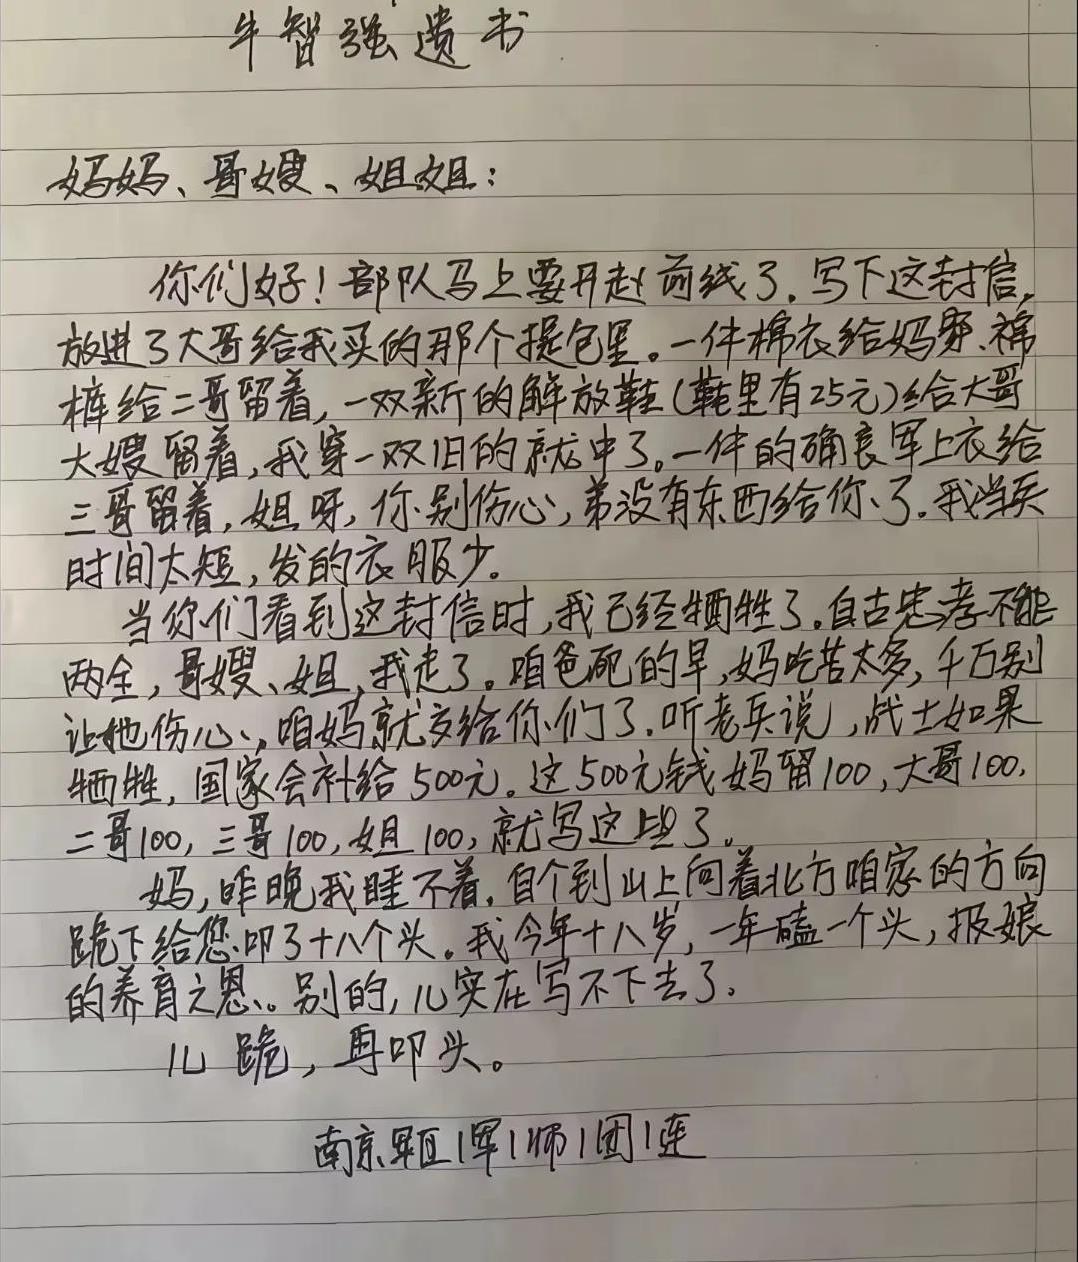 牛智强遗书
妈妈、哥嫂、姐姐：
你们好！部队马上要开赴前线了。写下这封信，
放进了大哥给我买的那个提包里。一件棉衣给妈穿、棉
裤给二哥留着，一双新的解放鞋（鞋里有25元）给大哥
大嫂留着，我穿一双旧的就中了。一件的确良军上衣给
三哥留着，姐呀，你别伤心，弟没有东西给你了。我当兵
时间太短，发的衣服少。
当你们看到这封信时，我已经牺牲了。自古忠孝不能
两全，哥嫂、姐，我走了。咱爸死的早，妈吃苦太多，千万别
让她伤心，咱妈就交给你们了。听老兵说，战士如果
牺牲，国家会补给500元。这500元钱妈留100，大哥100，
二哥100，三哥100，姐100，就写这些了。
妈，昨晚我睡不着，自个到山上向着北方咱家的方向
跪下给您叩了十八个头。我今年十八岁，一年磕一个头，报娘
的养育之恩。别的，儿实在写不下去了。
儿跪，再叩头。
南京军区1军1师1团1连